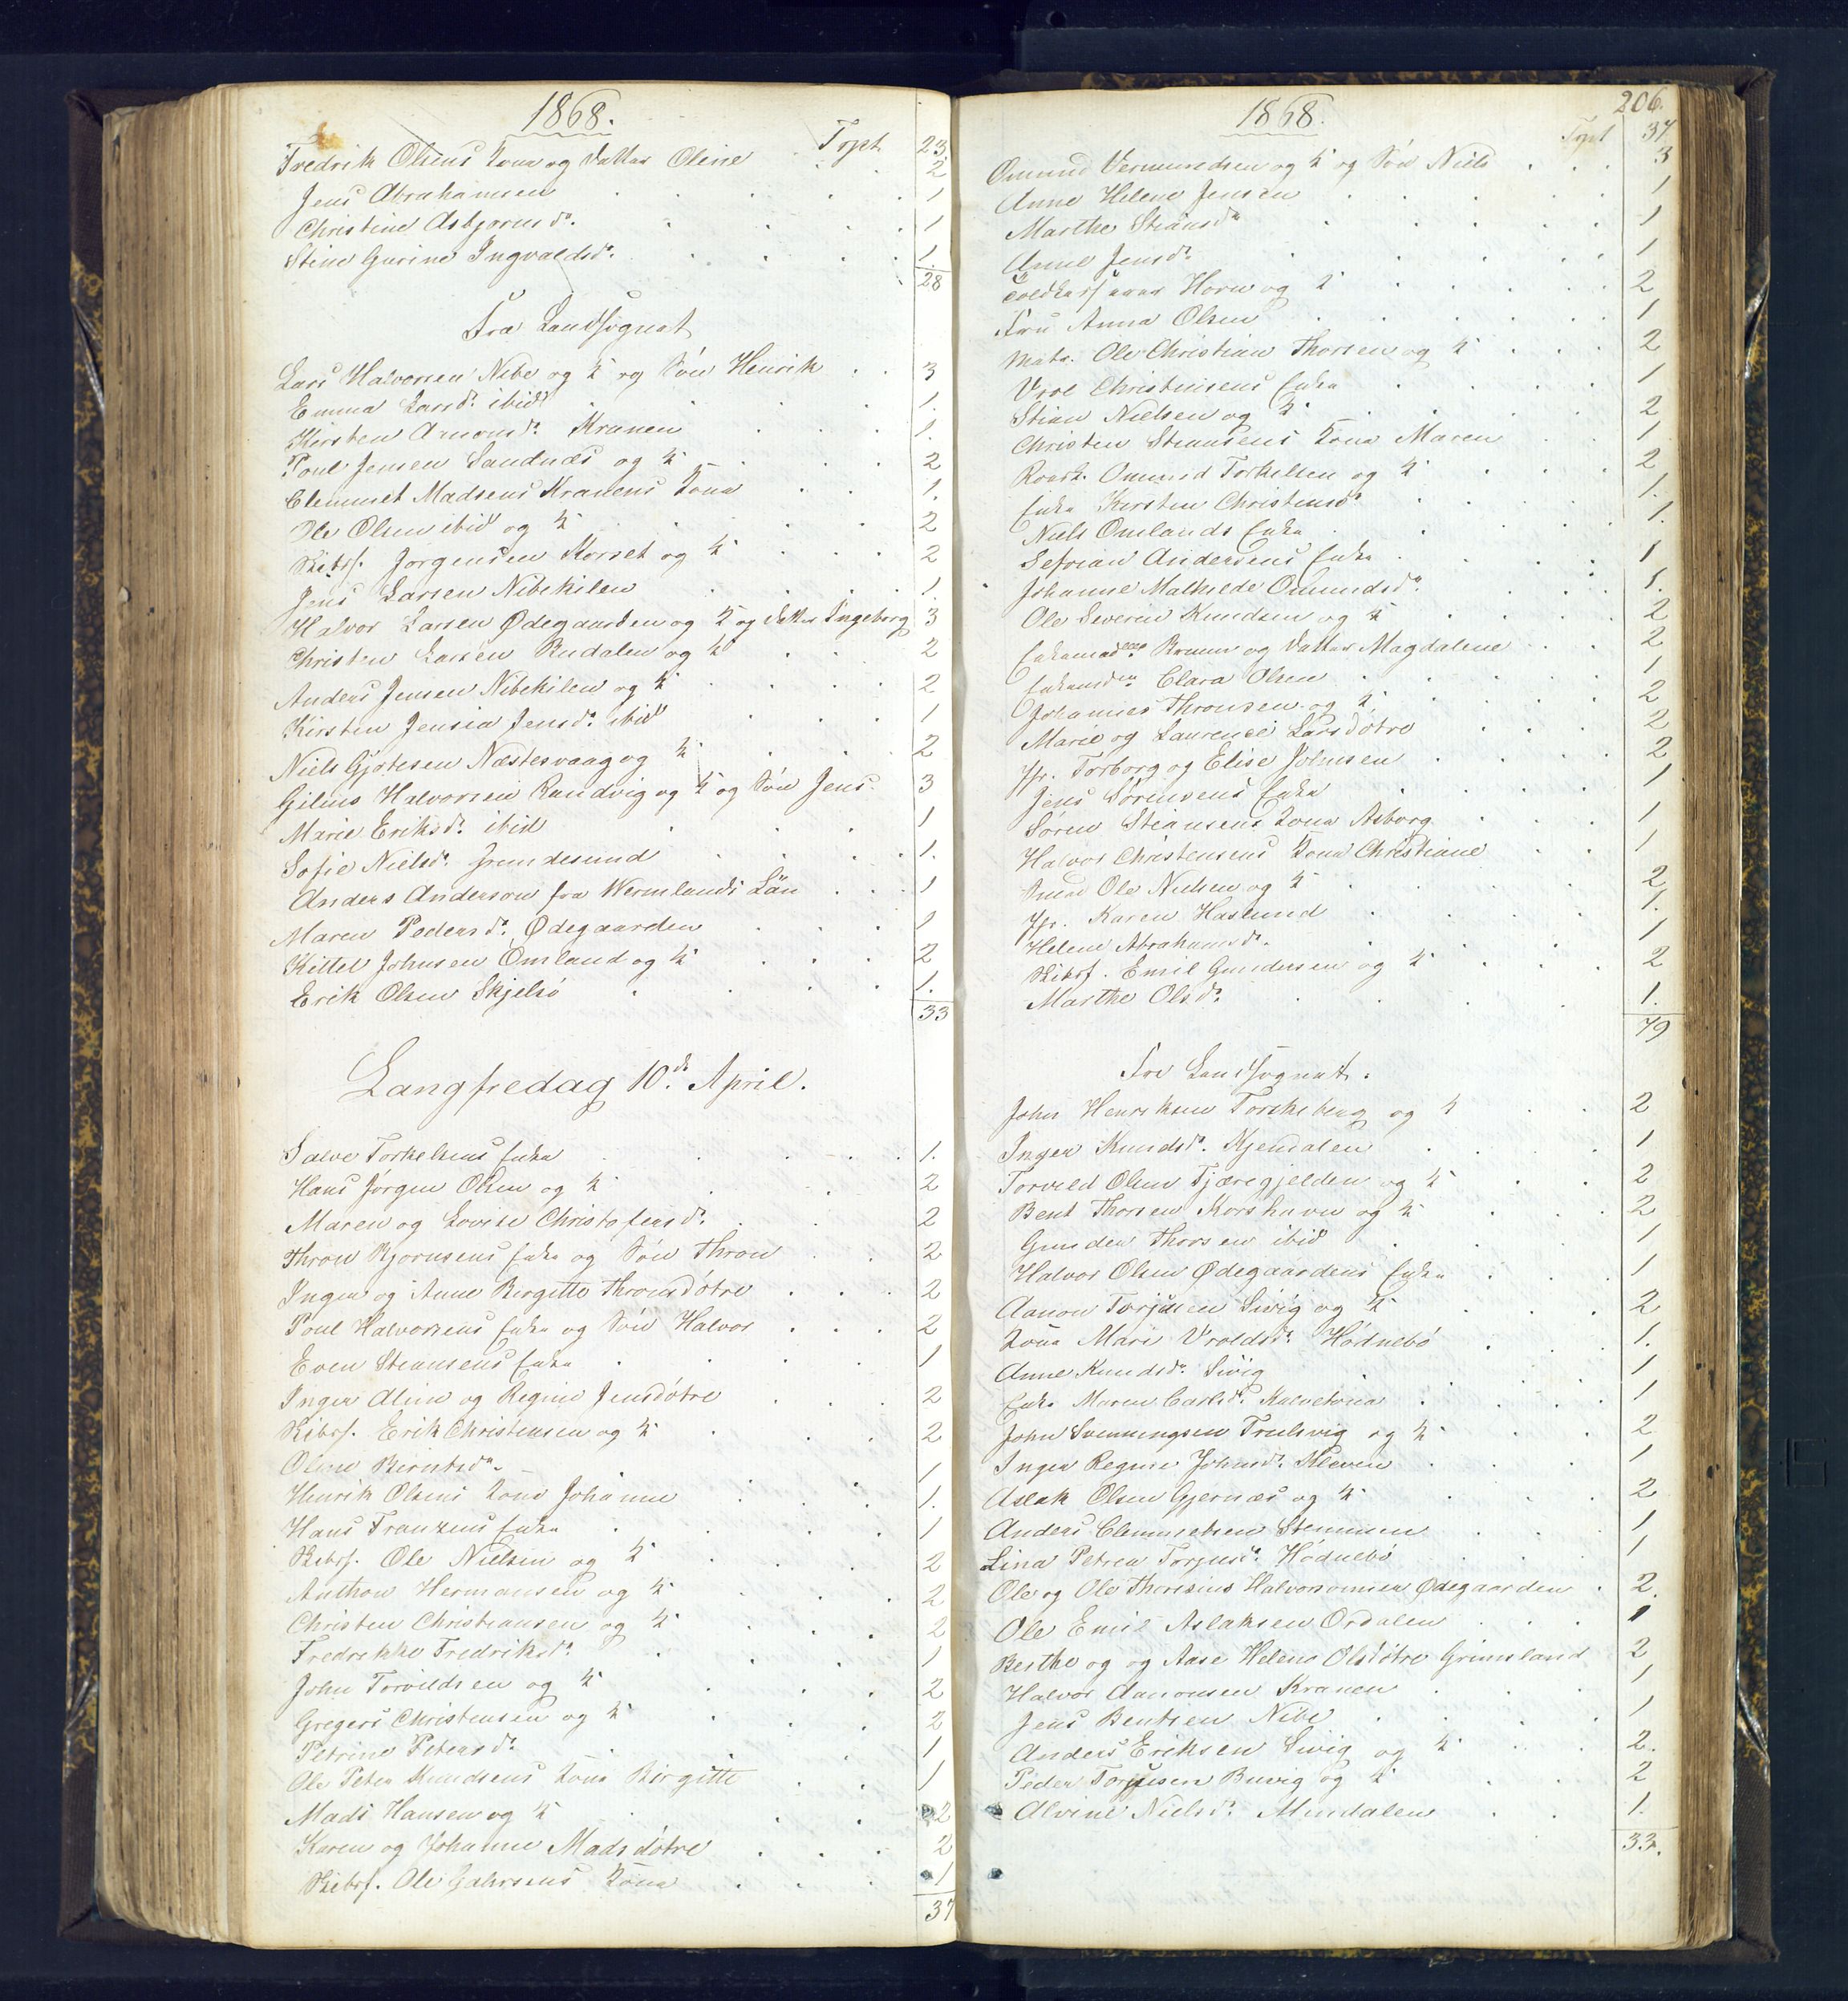 1868.
Tpt 23
Fredrik Olsens Kone og Datter Oline . . 2
Jens Abrahamsen . . . . 1
Christine Asbjornsdr. . . . . 1
Stine Gurine Ingvaldsdr. . . . . 1.
28
Fra Landsognet
Lars Halvorsen Nibe og K og Søn Henrik . . 3
Emma Larsdr. ibid . . . . 1.
Kirsten Amonsdr. Kranen . . . 1.
Poul Jensen Sandnæs og K . . . 2
Clemmet Madsens Kranens Kone . . 1.
Ole Olsen ibid og K . . . . 2
Skibsf. Jörgensen Korset og K . . . 2
Jens Larsen Nibekilen . . . . 1.
Halvor Larsen Ødegaarden og K og Datter Ingeborg 3
Christen Larsen Rudalen og K . . . 2
Anders Jensen Nibekilen og K . . . 2
Kirsten Jensia Jensdr. ibid . . . 1
Niels Gjötesen Næstesvaag og K . . . 2
Gilius Halvorsen Randvig og K og Søn Jens. 3
Marie Eriksdr. ibid . . . 1
Sofie Nielsdr. Grundesund . . . . 1.
Anders Anderson fra Wermlands Län . . . 1
Maren Pedersdr. Ødegaarden . . . 1
Kittel Johnsen Omland og K . . . 2
Erik Olsen Skjelsö . . . . 1.
33
Langfredag 10de April.
Salve Torkelsens Enke . . . . 1.
Hans Jörgen Olsen og K . . . 2
Maren og Lovise Christofersdr. . . 2
Thron Bjornsens Enke og Søn Thron . . 2
Inger og Anne Birgitte Thronsdötre . . . 2
Poul Halvorsens Enke og Søn Halvor . . . 2
Even Stiansens Enke . . . . 1
Inger Aline og Regine Jensdötre . . . 2
Skibsf. Erik Christensen og K . . . 2
Oline Berntsdr. . . . . 1
Henrik Olsens Kone Johanne . . . 1.
Hans Franzens Enke . . . . 1
Skibsf. Ole Nielsen og K . . . 2
Anthon Hermansen og K . . . 2
Christen Christiansen og K . . . 2
Fredrikke Fredriksdr. . . . 1
John Torvildsen og K . . . 2
Gregers Christensen og K . . . 2
Petrine Petersdr. . . . 1
Ole Peter Knudsens Kone Birgitte . . 1
Mads Hansen og K . . . 2
Karen og Johanne Madsdötre . . . 2
Skibsf. Ole Gahrsens Kone . . . 1
37
206.
1868.
Tpt 37
Omund Vermundsen og K og Søn Niels . . . 3
Anne Helene Jensen . . . . 1
Marthe Stiansdr. . . . . 1
Anne Jensdr. . . . . 1
Horn og K . . . . 2
Fru Anna Olsen . . . . 1
Mats. Ole Christian Thorsen og K . . . 2
Vrol Christensens Enke . . . 1
Stian Nielsen og K . . . . 2
Christen Stiansens Kone Maren . . 1
Omund Torkelsen og K . . . 2
Enke Kirsten Christensdr. . . . 1.
Niels Omlands Enke . . . . 1.
Sefrian Andersens Enke . . . . 1
Johanne Mathilde Omundsdr. . . . 1.
Ole Severin Knudsen og K . . . 2
Enkemad. Bruun og Datter Magdalene . . 2
Enkemad. Clara Olsen . . . . 1
Johannes Thronsen og K . . . 2
Marie og Laurence Larsdötre . . . 2
Jfr. Torborg og Elise Johnsen . . . 2
Jens Sörensens Enke . . . . 1
Sören Stiansens Kone Asborg . . . 1
Halvor Christensens Kone Christiane . . 1
Smed Ole Nielsen og K . . . . 2
Jfr. Karen Haslund . . . . 1.
Helene Abrahamsdr. . . . . 1
Skibsf. Emil Gundersen og K . . . 2
Marthe Olsdr. . . . . 1.
79
Fra Landsognet.
John Henriksen Torskeberg og K . . 2
Inger Knudsdr. Kjendalen . . . . 1
Torvild Olsen Tjæregjelden og K . . 2
Bent Thorsen Korshavn og K . . . 2
Gunder Thorsen ibid . . . . 1
Halvor Olsen Ødegaardens Enke . . . 1
Aanon Torjusen Sivig og K . . . 2
Kone Mari Vroldsdr. Hödnebö . . . 1.
Anne Knudsdr. Sivig . . . 1
Enke Maren Carlsdr. Kalvehna . . . . 1
John Svenningsen Trulsvig og K . . 2
Inger Regine Johnsdr. Kleven . . . 1
Aslak Olsen Gjernæs og K . . . 2
Anders Clemmetsen Stemmen . . . 1
Lina Petrea Torjusdr. Hödnebö . . . 1
Ole og Ole Thorsius Halvorsönner Ødegaarden . 2.
Ole Emil Aslaksen Ordalen . . . 1
Berthe og og Aase Helene Olsdötre Grimsland 2
Halvor Aanonsen Kranen . . . 1
Jens Bentsen Nibe . . . . 1
Anders Eriksen Sivig og K . . . 2.
Peder Torjusen Buvig og K . . 2
Alvine Nielsdr. Mundalen . . . 1.
33.